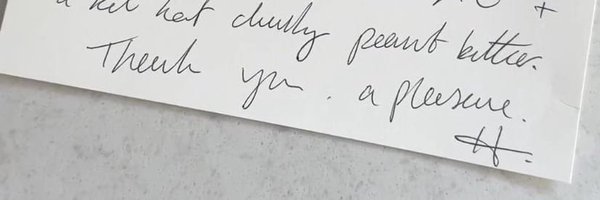 a kit kat chunky peanut butter.
Thank you. a pleasure.
H.